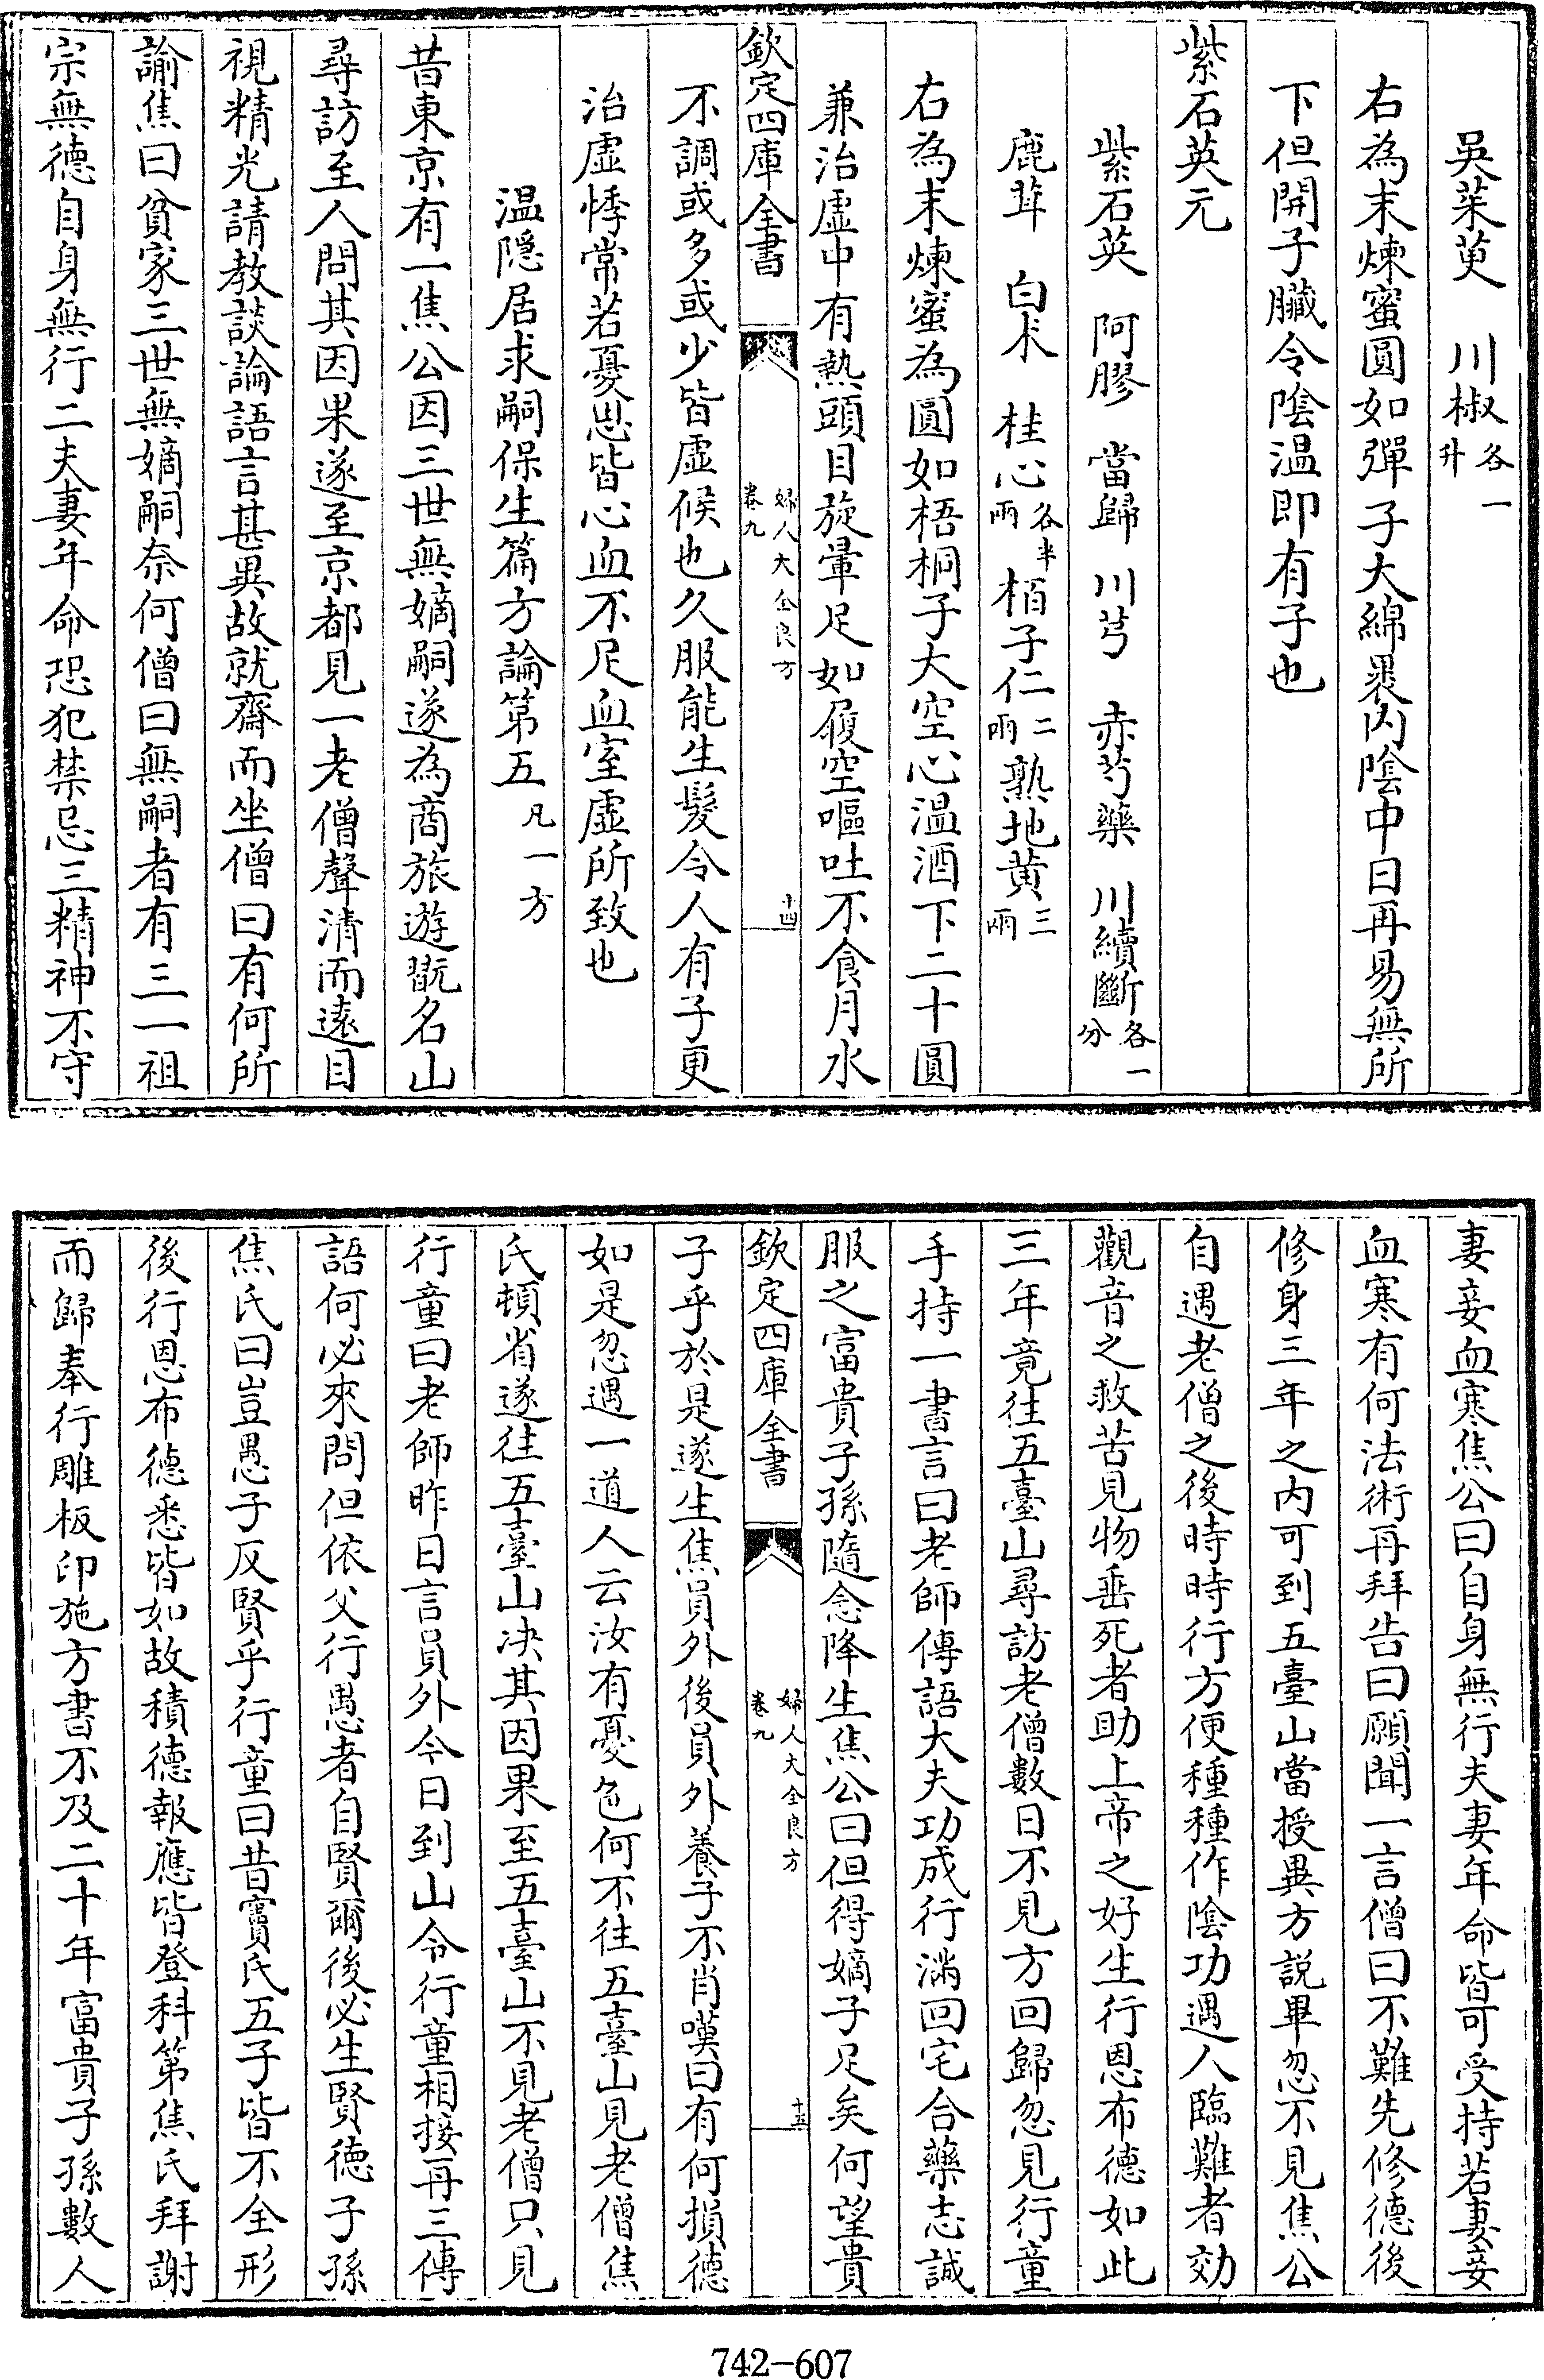 吳茱萸　川椒各一升
右為末煉蜜圓如彈子大綿褁内陰中日再易無所
下但開子臟令陰温即有子也
紫石英元
紫石英　阿膠　當歸　川芎　赤芍藥　川續斷各一分
鹿茸　白朮　桂心各半兩　栢子仁二兩　熟地黄三兩
右為末煉蜜為圓如梧桐子大空心温酒下二十圓
兼治虚中有熱頭目旋暈足如履空嘔吐不食月水
欽定四庫全書　婦人大全良方　卷九　十四
不調或多或少皆虚候也久服能生髮令人有子更
治虚悸常若憂思皆心血不足血室虚所致也
温隠居求嗣保生篇方論第五凡一方
昔東京有一焦公因三世無嫡嗣遂為商旅遊翫名山
尋訪至人問其因果遂至京都見一老僧聲清而遠目
視精光請教談論語言甚異故就齋而坐僧曰有何所
諭焦曰貧家三世無嫡嗣奈何僧曰無嗣者有三一祖
宗無德自身無行二夫妻年命恐犯禁忌三精神不守
妻妾血寒焦公曰自身無行夫妻年命皆可受持若妻妾
血寒有何法術再拜告曰願聞一言僧曰不難先修德後
修身三年之内可到五臺山當授異方説畢忽不見焦公
自遇老僧之後時時行方便種種作陰功遇人臨難者効
觀音之救苦見物垂死者助上帝之好生行恩布德如此
三年竟往五臺山尋訪老僧數日不見方回歸忽見行童
手持一書言曰老師傳語大夫功成行滿回宅合藥志誠
服之富貴子孫隨念降生焦公曰但得嫡子足矣何望貴
欽定四庫全書　婦人大全良方　卷九　十五
子乎於是遂生焦員外後員外養子不肖嘆曰有何損德
如是忽遇一道人云汝有憂色何不往五臺山見老僧焦
氏頓省遂往五臺山决其因果至五臺山不見老僧只見
行童曰老師昨日言員外今日到山令行童相接再三傳
語何必來問但依父行愚者自賢爾後必生賢德子孫
焦氏曰豈愚子反賢乎行童曰昔竇氏五子皆不全形
後行恩布德悉皆如故積德報應皆登科第焦氏拜謝
而歸奉行雕板印施方書不及二十年富貴子孫數人
742-607